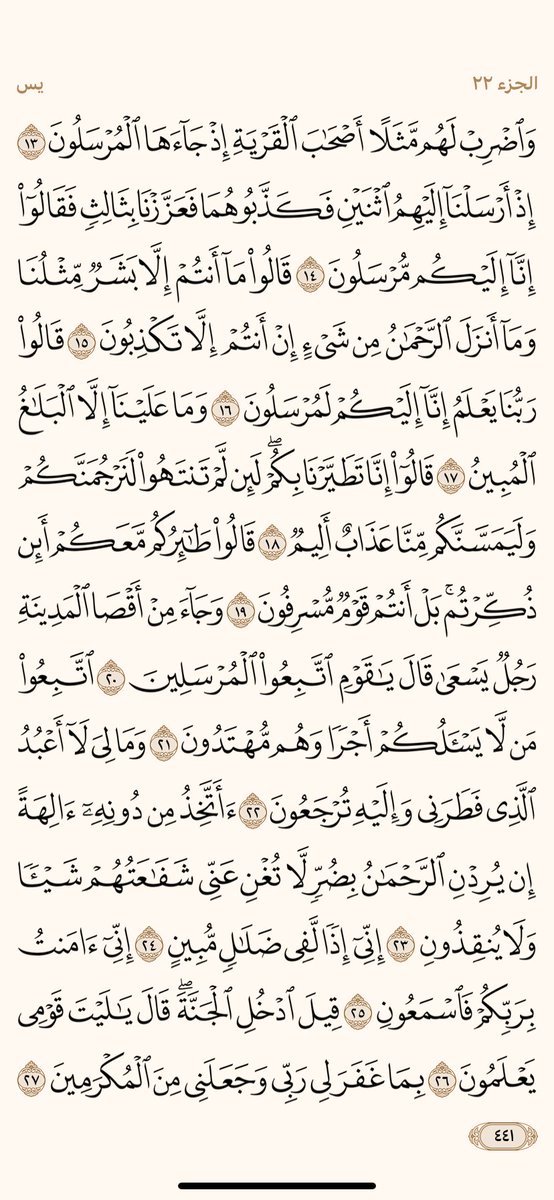 الجزء ٢٢
يس
وَٱضْرِبْ لَهُم مَّثَلًا أَصْحَٰبَ ٱلْقَرْيَةِ إِذْ جَآءَهَا ٱلْمُرْسَلُونَ ١٣
إِذْ أَرْسَلْنَآ إِلَيْهِمُ ٱثْنَيْنِ فَكَذَّبُوهُمَا فَعَزَّزْنَا بِثَالِثٍ فَقَالُوٓا۟
إِنَّآ إِلَيْكُم مُّرْسَلُونَ ١٤ قَالُوا۟ مَآ أَنتُمْ إِلَّا بَشَرٌ مِّثْلُنَا
وَمَآ أَنزَلَ ٱلرَّحْمَٰنُ مِن شَىْءٍ إِنْ أَنتُمْ إِلَّا تَكْذِبُونَ ١٥ قَالُوا۟
رَبُّنَا يَعْلَمُ إِنَّآ إِلَيْكُمْ لَمُرْسَلُونَ ١٦ وَمَا عَلَيْنَآ إِلَّا ٱلْبَلَٰغُ
ٱلْمُبِينُ ١٧ قَالُوٓا۟ إِنَّا تَطَيَّرْنَا بِكُمْ ۖ لَئِن لَّمْ تَنتَهُوا۟ لَنَرْجُمَنَّكُمْ
وَلَيَمَسَّنَّكُم مِّنَّا عَذَابٌ أَلِيمٌ ١٨ قَالُوا۟ طَٰٓئِرُكُم مَّعَكُمْ أَئِن
ذُكِّرْتُم ۚ بَلْ أَنتُمْ قَوْمٌ مُّسْرِفُونَ ١٩ وَجَآءَ مِنْ أَقْصَا ٱلْمَدِينَةِ
رَجُلٌ يَسْعَىٰ قَالَ يَٰقَوْمِ ٱتَّبِعُوا۟ ٱلْمُرْسَلِينَ ٢٠ ٱتَّبِعُوا۟
مَن لَّا يَسْـَٔلُكُمْ أَجْرًا وَهُم مُّهْتَدُونَ ٢١ وَمَا لِىَ لَآ أَعْبُدُ
ٱلَّذِى فَطَرَنِى وَإِلَيْهِ تُرْجَعُونَ ٢٢ ءَأَتَّخِذُ مِن دُونِهِۦٓ ءَالِهَةً
إِن يُرِدْنِ ٱلرَّحْمَٰنُ بِضُرٍّ لَّا تُغْنِ عَنِّى شَفَٰعَتُهُمْ شَيْـًٔا
وَلَا يُنقِذُونِ ٢٣ إِنِّىٓ إِذًا لَّفِى ضَلَٰلٍ مُّبِينٍ ٢٤ إِنِّىٓ ءَامَنتُ
بِرَبِّكُمْ فَٱسْمَعُونِ ٢٥ قِيلَ ٱدْخُلِ ٱلْجَنَّةَ ۖ قَالَ يَٰلَيْتَ قَوْمِى
يَعْلَمُونَ ٢٦ بِمَا غَفَرَ لِى رَبِّى وَجَعَلَنِى مِنَ ٱلْمُكْرَمِينَ ٢٧
٤٤١